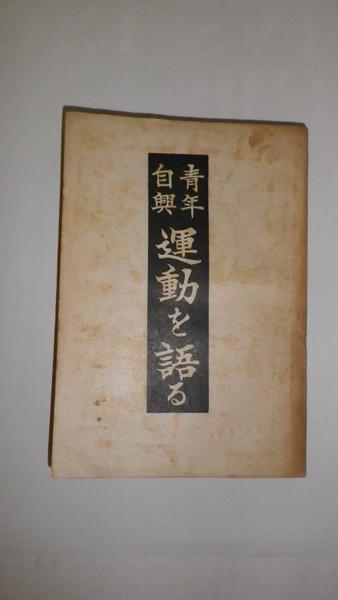 青年
自興
運動を語る